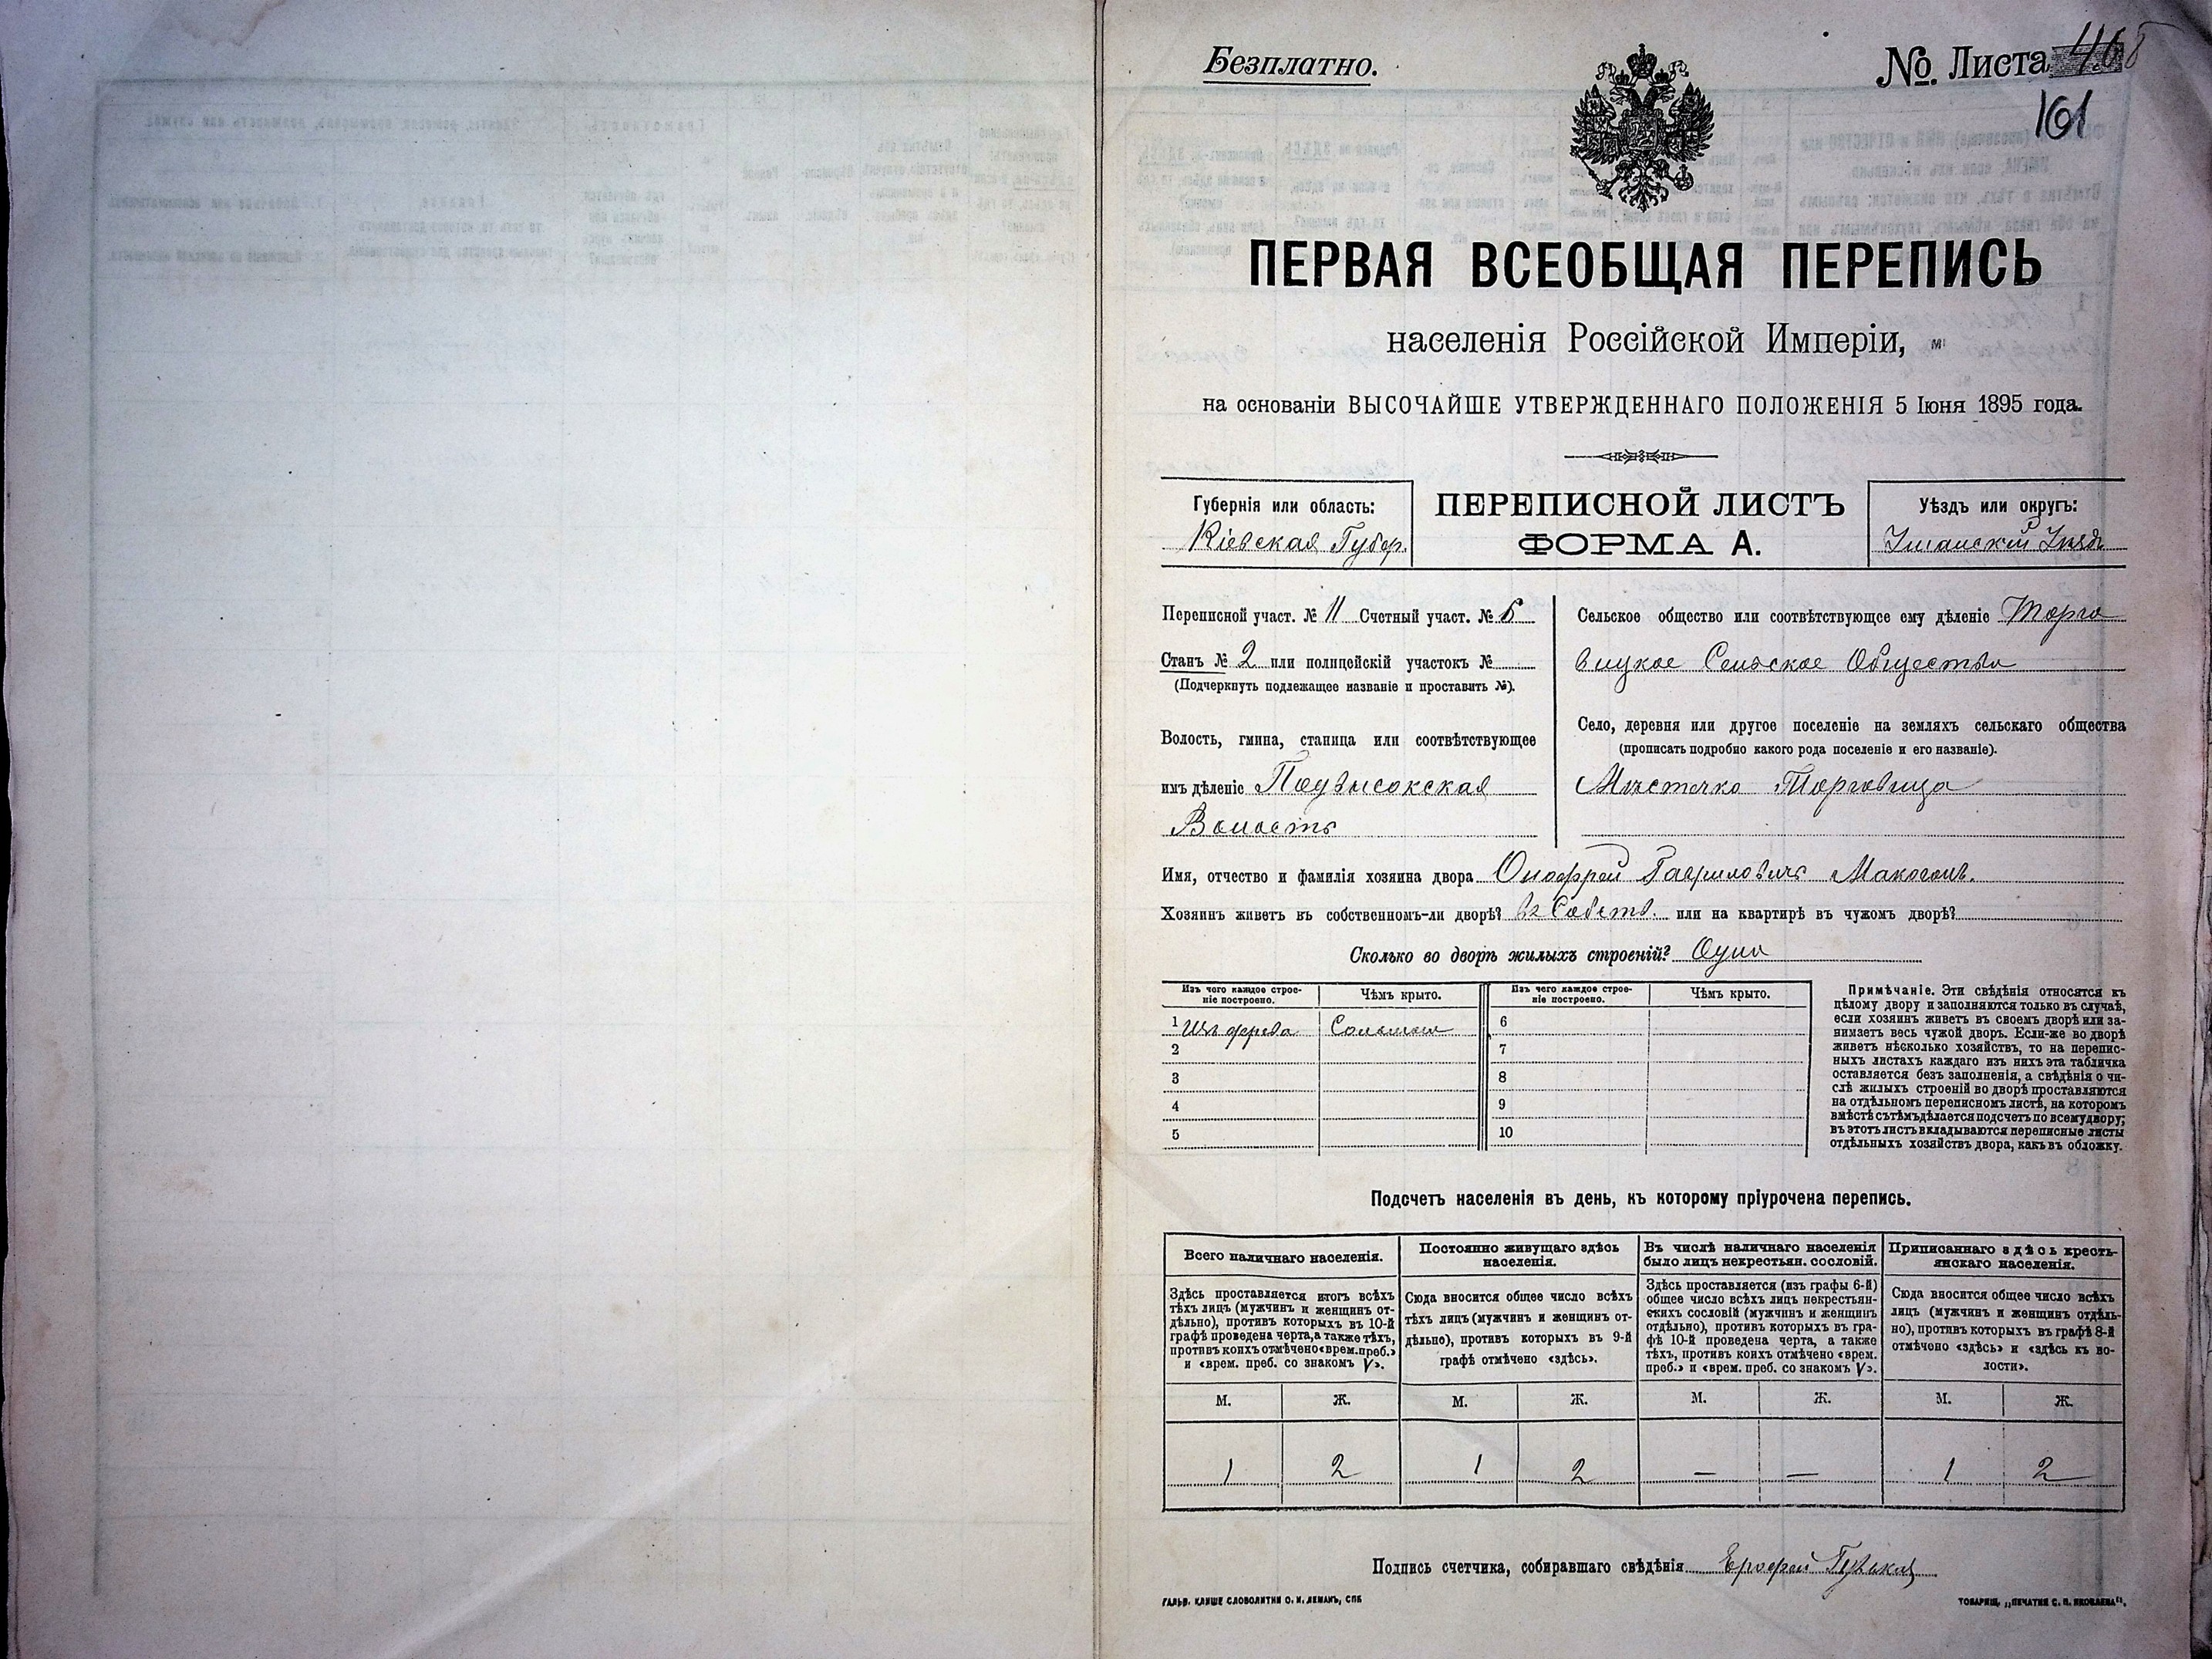 Безплатно.
№. Листа 468
161
ПЕРВАЯ ВСЕОБЩАЯ ПЕРЕПИСЬ
населенія Россійской Имперіи,
на основаніи ВЫСОЧАЙШЕ УТВЕРЖДЕННАГО ПОЛОЖЕНІЯ 5 Іюня 1895 года.
Губернія или область:
Кіевская Губер.
ПЕРЕПИСНОЙ ЛИСТЪ
ФОРМА А.
Уѣздъ или округъ:
Уманскій Уѣздъ
Переписной участ. № 11 Счетный участ. № 5
Станъ № 2 или полицейскій участокъ №
(Подчеркнуть подлежащее названіе и проставить №).
Волость, гмина, станица или соотвѣтствующее
имъ дѣленіе Подвысокская
Волость
Сельское общество или соотвѣтствующее ему дѣленіе Торго
вицкое Сельское Общество
Село, деревня или другое поселеніе на земляхъ сельскаго общества
(прописать подробно какого рода поселеніе и его названіе).
Мѣстечко Торговица
Имя, отчество и фамилія хозяина двора Онофрей Гавриловичъ Макогонъ.
Хозяинъ живетъ въ собственномъ-ли дворѣ? въ Собств. или на квартирѣ въ чужомъ дворѣ?
Сколько во дворѣ жилыхъ строеній? Одно
Изъ чего каждое строе-
ніе построено.
Чѣмъ крыто.
Изъ чего каждое строе-
ніе построено.
Чѣмъ крыто.
1 Изъ дерева Соломою
6
2
7
3
8
4
9
5
10
Примѣчаніе. Эти свѣдѣнія относятся къ
цѣлому двору и заполняются только въ случаѣ,
если хозяинъ живетъ въ своемъ дворѣ или за-
нимаетъ весь чужой дворъ. Если-же во дворѣ
живетъ нѣсколько хозяйствъ, то на перепис-
ныхъ листахъ каждаго изъ нихъ эта табличка
оставляется безъ заполненія, а свѣдѣнія о чи-
слѣ жилыхъ строеній во дворѣ проставляются
на отдѣльномъ переписномъ листѣ, на которомъ
вмѣстѣ съ тѣмъ дѣлается подсчетъ по всему двору;
въ этотъ листъ вкладываются переписные листы
отдѣльныхъ хозяйствъ двора, какъ въ обложку.
Подсчетъ населенія въ день, къ которому пріурочена перепись.
Всего наличнаго населенія.
Здѣсь проставляется итогъ всѣхъ
тѣхъ лицъ (мужчинъ и женщинъ от-
дѣльно), противъ которыхъ въ 10-й
графѣ проведена черта, а также тѣхъ,
противъ коихъ отмѣчено «врем. преб.»
и «врем. преб. со знакомъ V».
Постоянно живущаго здѣсь
населенія.
Сюда вносится общее число всѣхъ
тѣхъ лицъ (мужчинъ и женщинъ от-
дѣльно), противъ которыхъ въ 9-й
графѣ отмѣчено «здѣсь».
Въ числѣ наличнаго населенія
было лицъ некрестьян. сословій.
Здѣсь проставляется (изъ графы 6-й)
общее число всѣхъ лицъ некрестьян-
скихъ сословій (мужчинъ и женщинъ
отдѣльно), противъ которыхъ въ гра-
фѣ 10-й проведена черта, а также
тѣхъ, противъ коихъ отмѣчено «врем.
преб.» и «врем. преб. со знакомъ V».
Приписаннаго здѣсь кресть-
янскаго населенія.
Сюда вносится общее число всѣхъ
лицъ (мужчинъ и женщинъ отдѣль-
но), противъ которыхъ въ графѣ 8-й
отмѣчено «здѣсь» и «здѣсь къ во-
лости».
М. Ж. М. Ж. М. Ж. М. Ж.
1 2 1 2 — — 1 2
Подпись счетчика, собиравшаго свѣдѣнія Ерофей
ГАЛЬВ. КЛИШЕ СЛОВОЛИТНИ О. И. ЛЕМАНЪ, СПБ
ТОВАРИЩ. „ПЕЧАТНЯ С. П. ЯКОВЛЕВА".